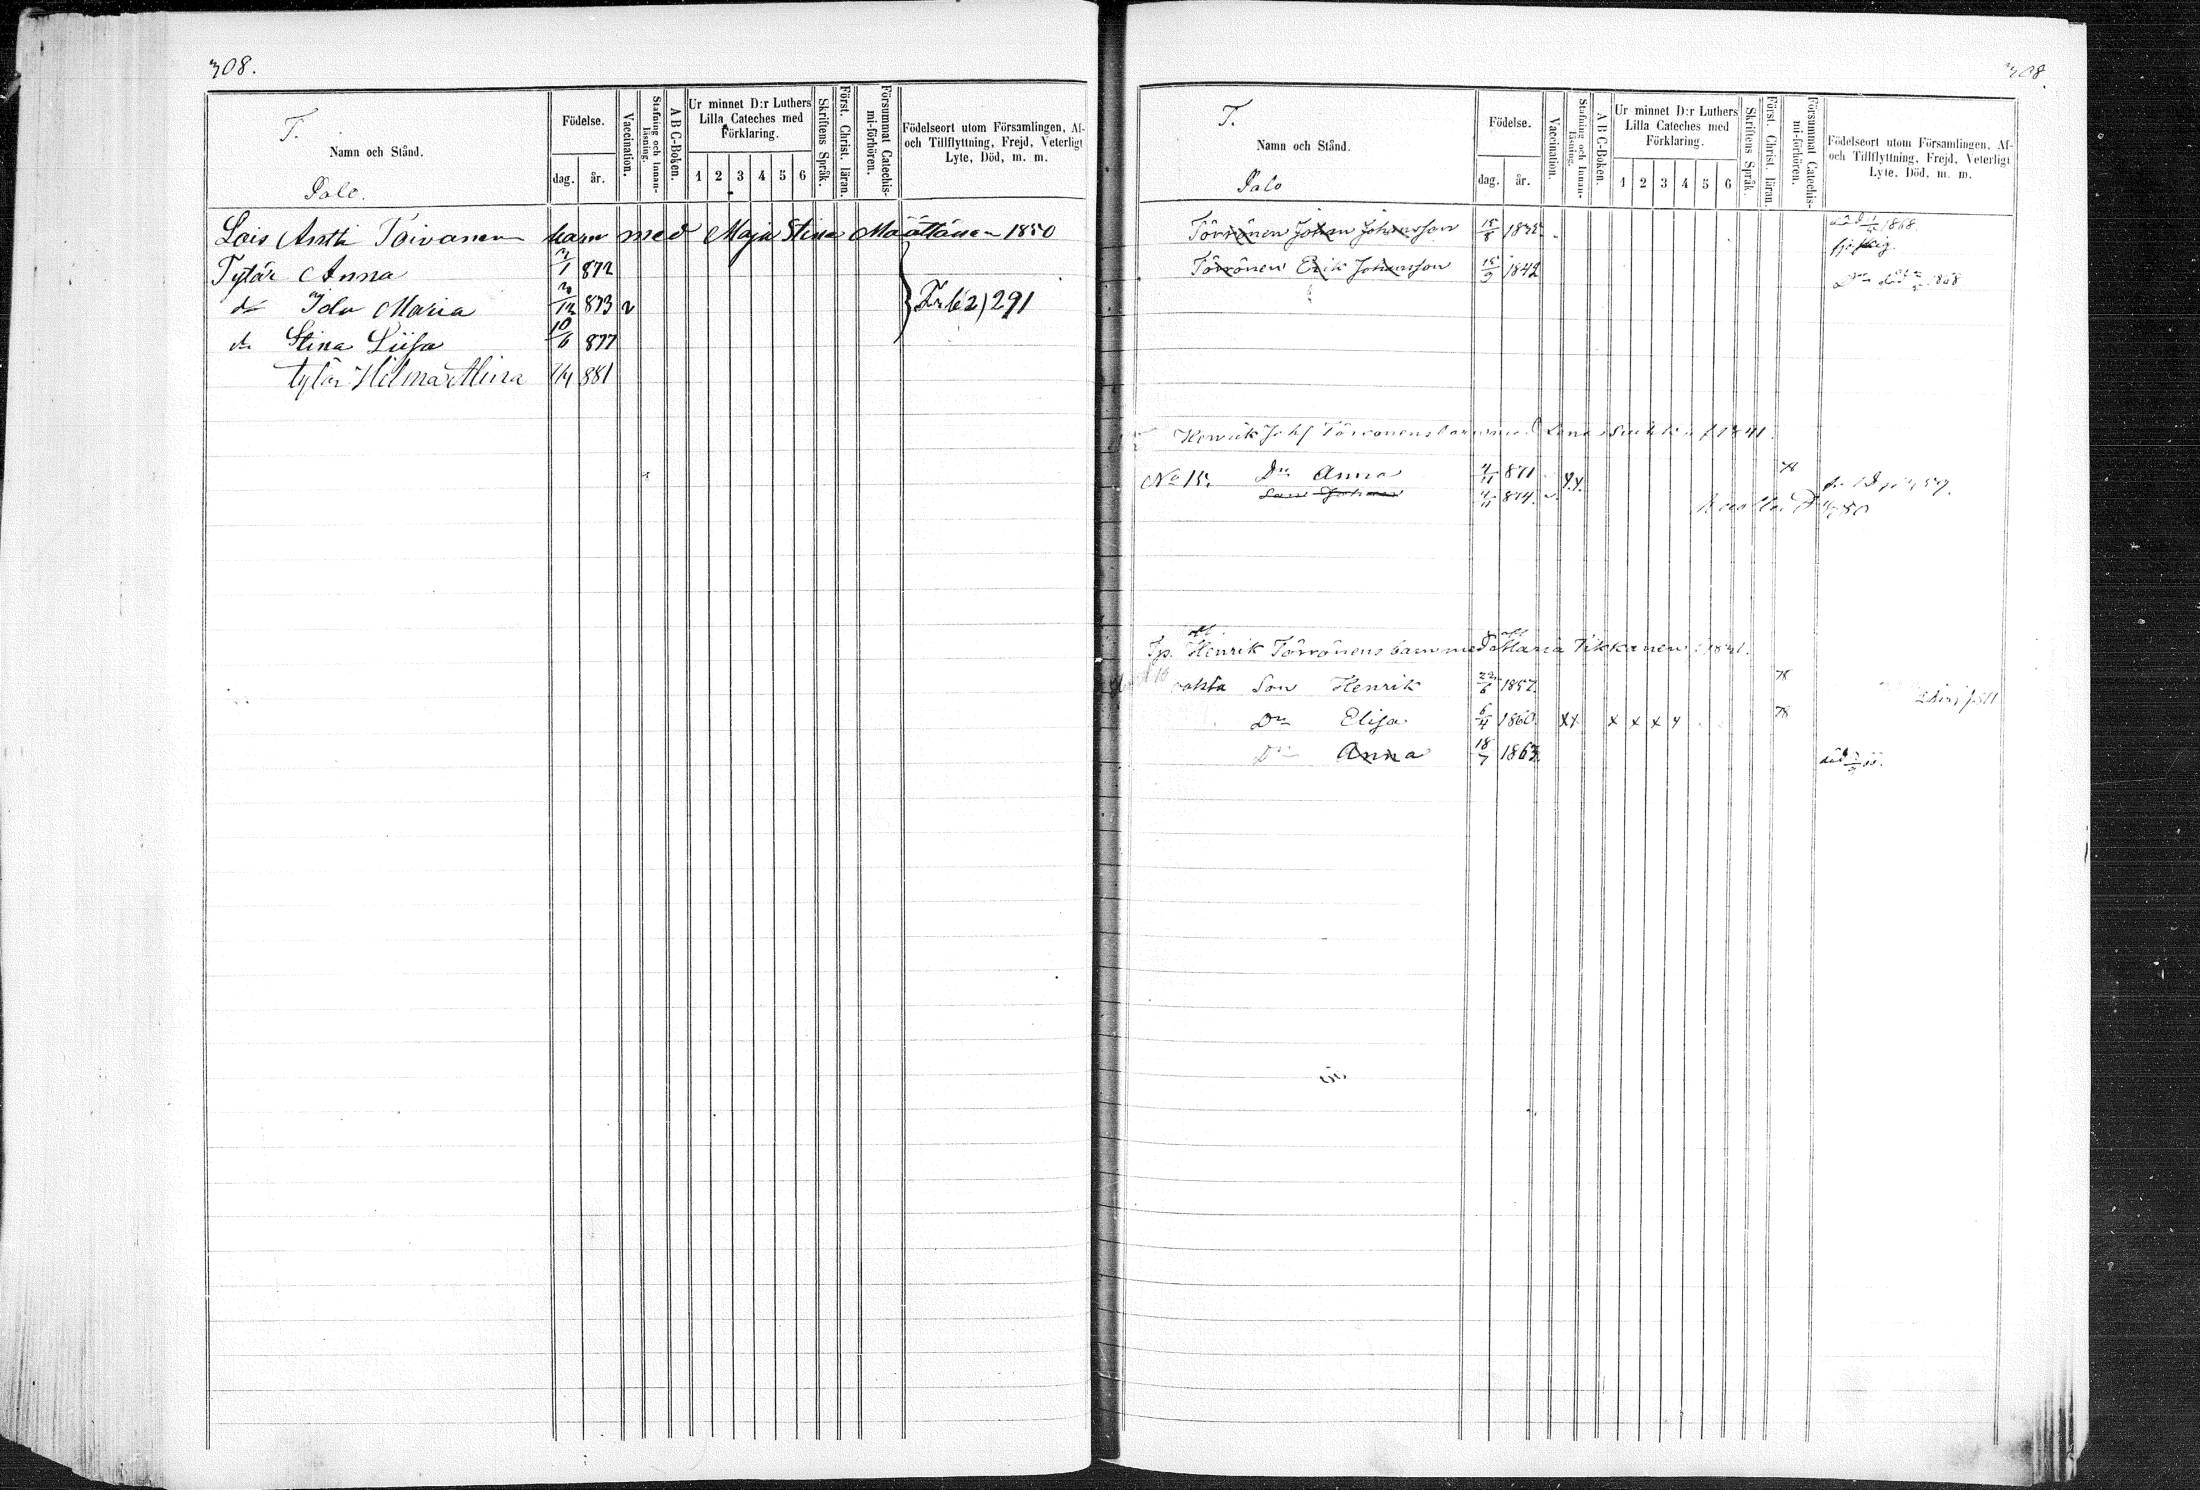 308.
T.
Namn och Stånd.
Palo.
Födelse.
dag. år.
Vaccination.
Stafning och Innan-
läsning.
A B C-Boken.
Ur minnet D:r Luthers
Lilla Cateches med
Förklaring.
1 2 3 4 5 6
Skriftens Språk.
Först. Christ. läran.
Försummat Catechis-
mi-förhören.
Födelseort utom Församlingen, Af-
och Tillflyttning, Frejd, Veterligt
Lyte, Död, m. m.
Lois Antti Toivanen barn med Maja Stina Määttänen 1850
Tytär Anna 2/1 872
do Ida Maria 20/12 873 v
Fr b 2) 291
do Stina Liisa 10/6 877
tytär Hilma Alina 881
308
T.
Namn och Stånd.
Palo
Födelse.
dag. år.
Vaccination.
Stafning och Innan-
läsning.
A B C-Boken.
Ur minnet D:r Luthers
Lilla Cateches med
Förklaring.
1 2 3 4 5 6
Skriftens Språk.
Först. Christ. läran.
Försummat Catechis-
mi-förhören.
Födelseort utom Församlingen, Af-
och Tillflyttning, Frejd, Veterligt
Lyte, Död, m. m.
Törrönen Johan Johansson 15/8 1868
Törrönen Erik Johansson 15/9 1842 1868
Henrik Johs Törrönens barn med Lena 1841
No 15. Dr Anna 4/11 871 x x 78
Son Johan 4/11 874
Henrik Törrönens barn med Maria Tikkanen
Son Henrik 22/6 1857 78
Dr Elisa 6/4 1860 x x x x x x 78
Dr Anna 18/7 1863 död